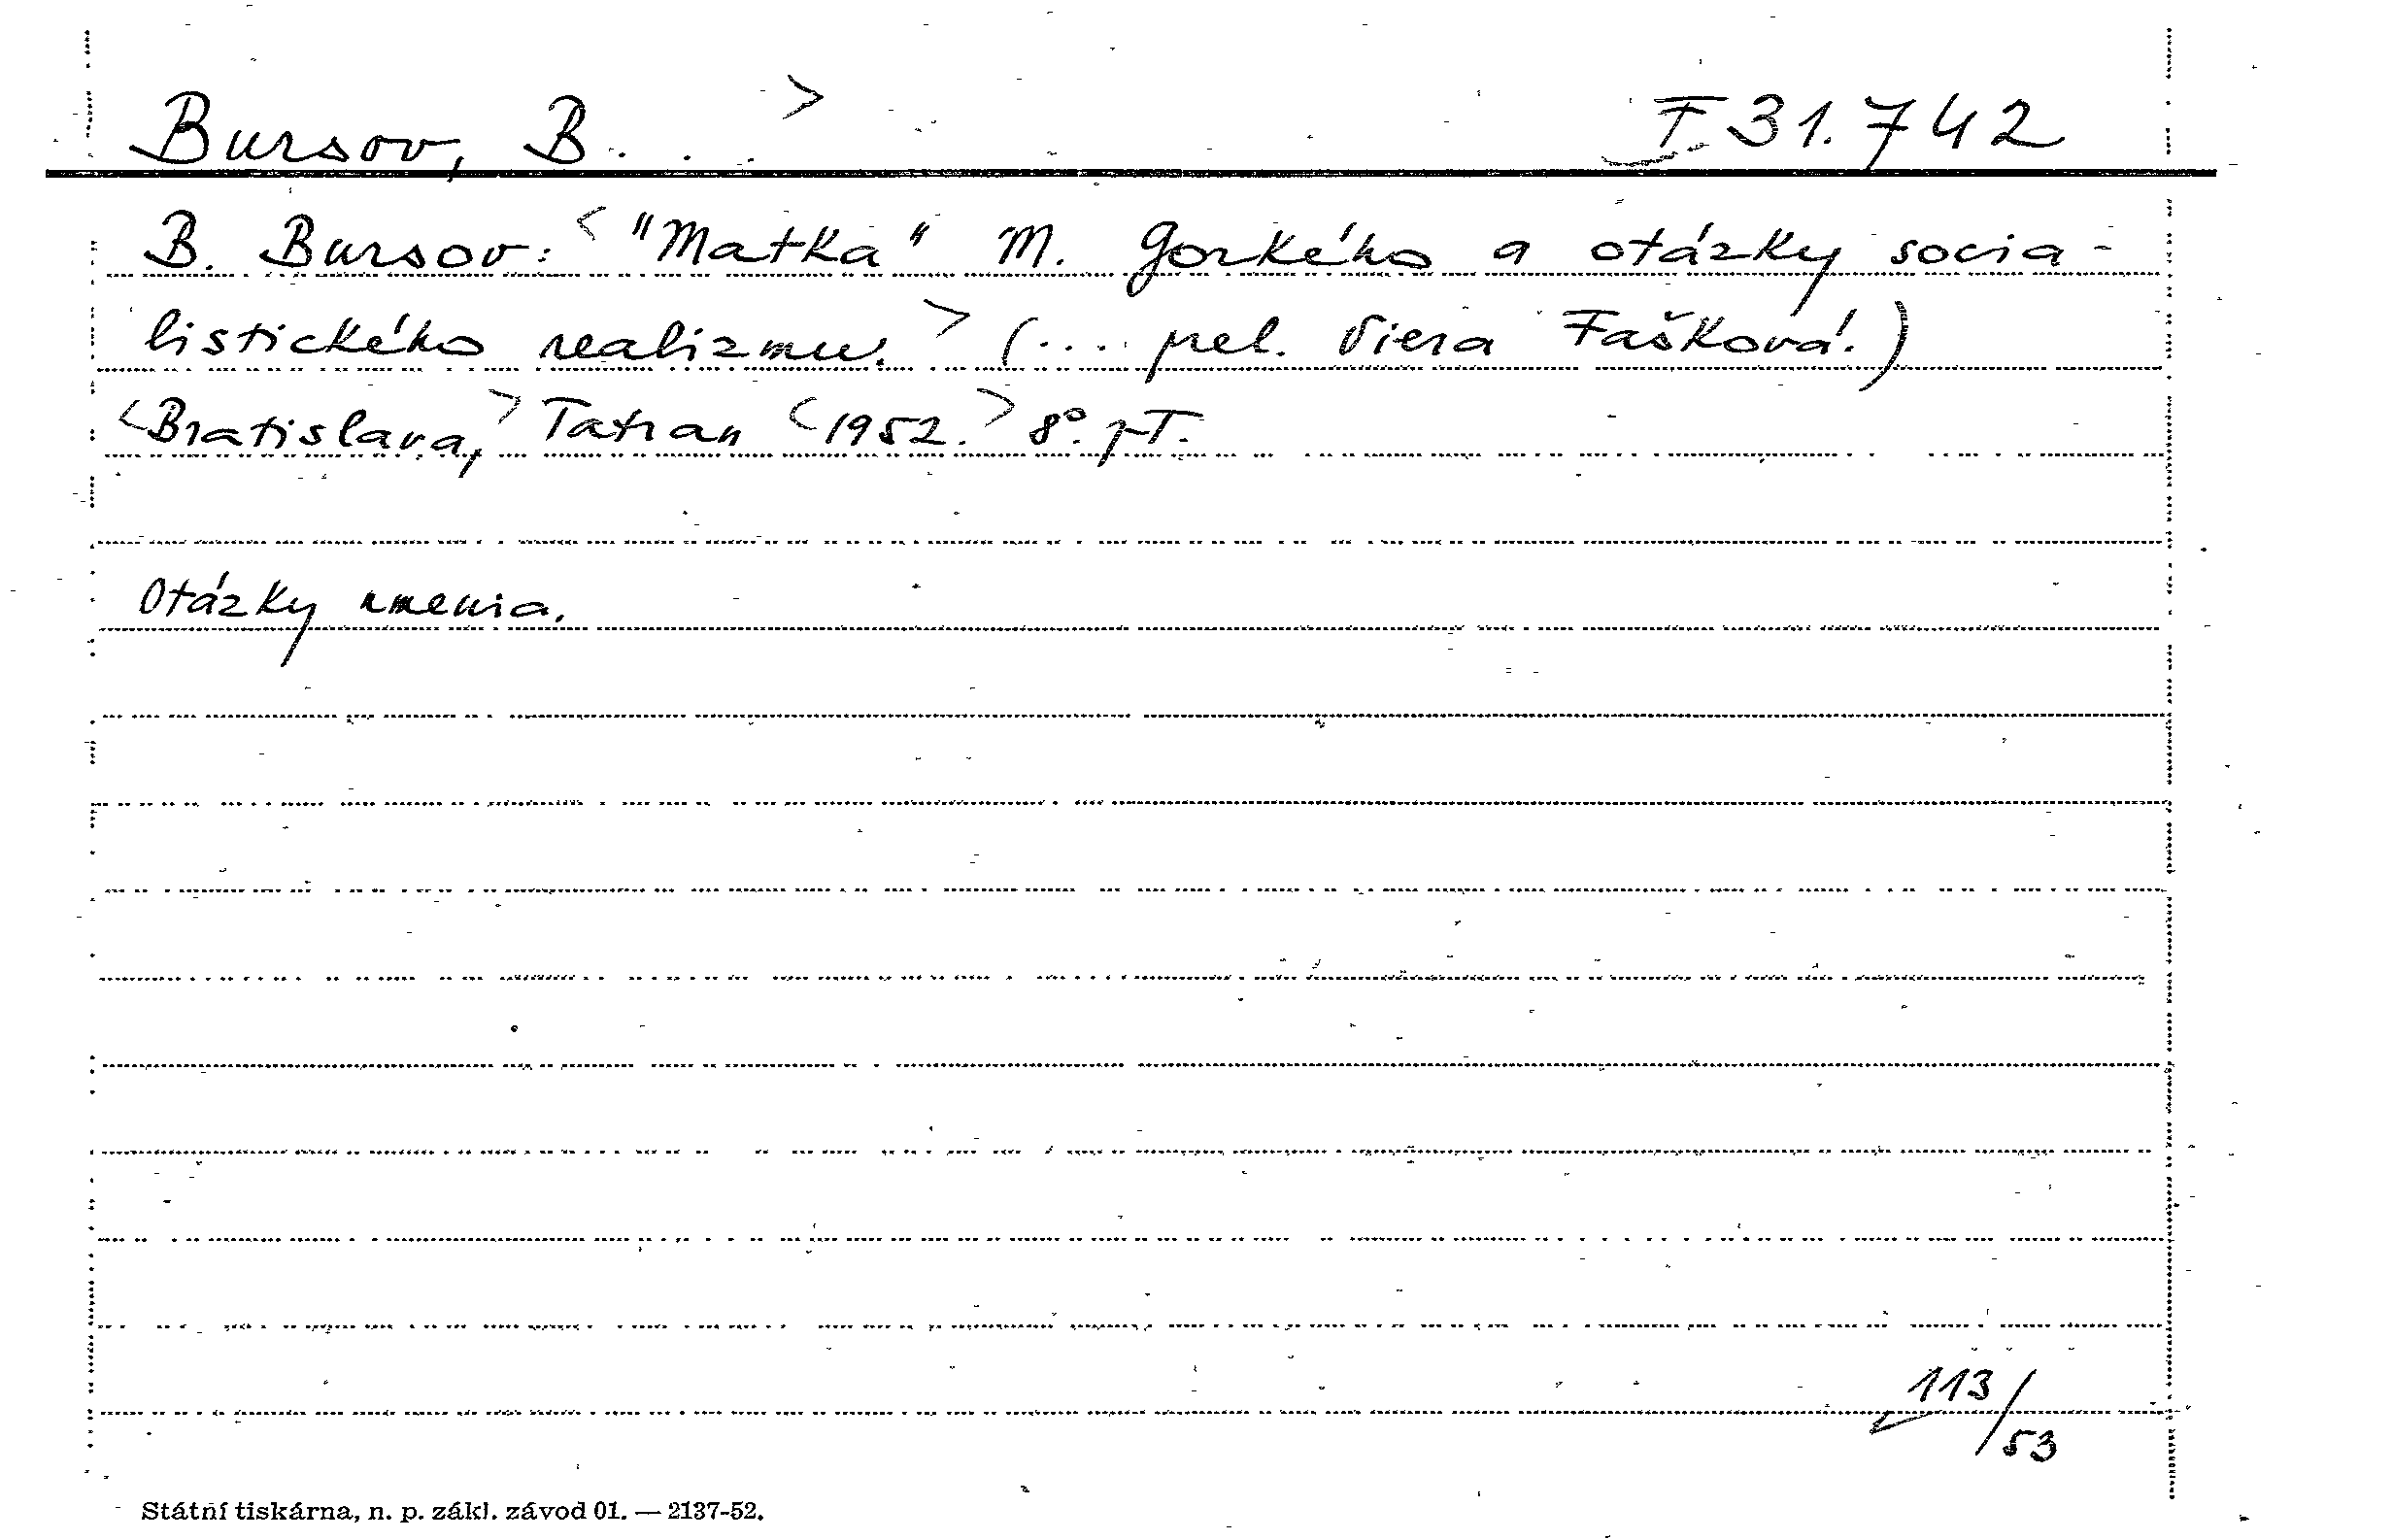 Bursov, B. > I 31.742
B. Bursov: < "Matka" M. Gorkého a otázky socia-
listického realizmu. > (.... prel. Viera Fašková.)
<Bratislava,> Tatran <1952.> 8°. pT.
Otázky umenia.
113/53
Státní tiskárna, n. p. zákl. závod 01. — 2137-52.